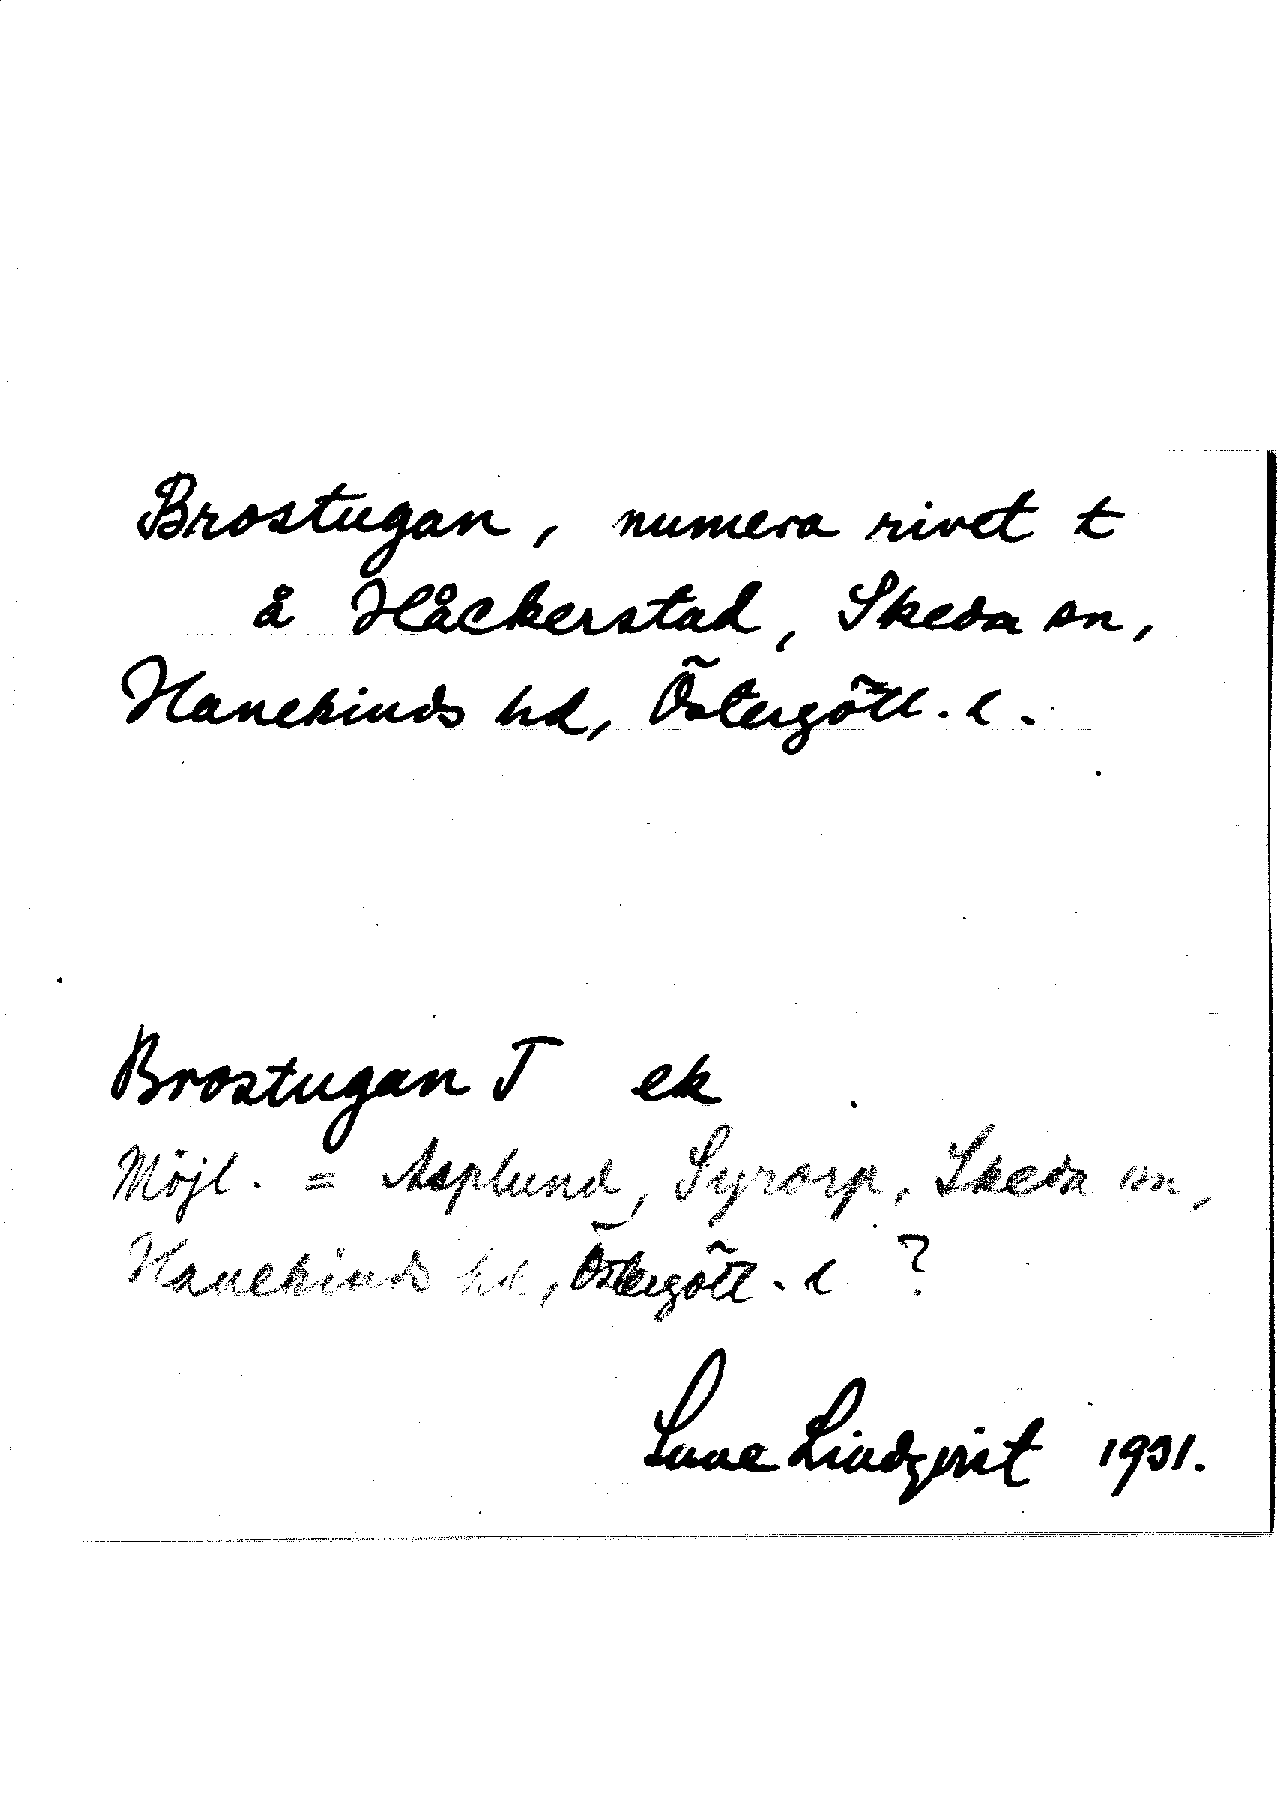 Brostugan, numera rivet t
å Håckerstad, Skeda sn,
Hanekinds hd, Östergötl. l.
Brostugan T ek
Möjl. = Asplund, Syrorp, Skeda sn,
Hanekinds hd, Östergötl. l ?
Sune Lindqvist 1931.